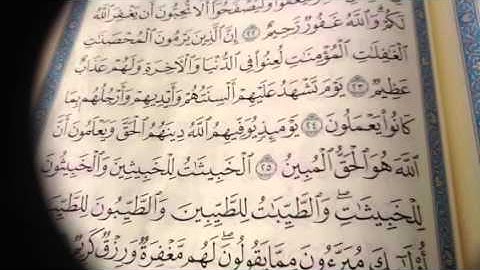 وَلْيَصْفَحُوٓا۟ أَلَا تُحِبُّونَ أَن يَغْفِرَ ٱللَّهُ
لَكُمْ وَٱللَّهُ غَفُورٌ رَّحِيمٌ ٢٢ إِنَّ ٱلَّذِينَ يَرْمُونَ ٱلْمُحْصَنَٰتِ
ٱلْغَٰفِلَٰتِ ٱلْمُؤْمِنَٰتِ لُعِنُوا۟ فِى ٱلدُّنْيَا وَٱلْءَاخِرَةِ وَلَهُمْ عَذَابٌ
عَظِيمٌ ٢٣ يَوْمَ تَشْهَدُ عَلَيْهِمْ أَلْسِنَتُهُمْ وَأَيْدِيهِمْ وَأَرْجُلُهُم بِمَا
كَانُوا۟ يَعْمَلُونَ ٢٤ يَوْمَئِذٍ يُوَفِّيهِمُ ٱللَّهُ دِينَهُمُ ٱلْحَقَّ وَيَعْلَمُونَ أَنَّ
ٱللَّهَ هُوَ ٱلْحَقُّ ٱلْمُبِينُ ٢٥ ٱلْخَبِيثَٰتُ لِلْخَبِيثِينَ وَٱلْخَبِيثُونَ
لِلْخَبِيثَٰتِ وَٱلطَّيِّبَٰتُ لِلطَّيِّبِينَ وَٱلطَّيِّبُونَ
مُبَرَّءُونَ مِمَّا يَقُولُونَ لَهُم مَّغْفِرَةٌ وَرِزْقٌ